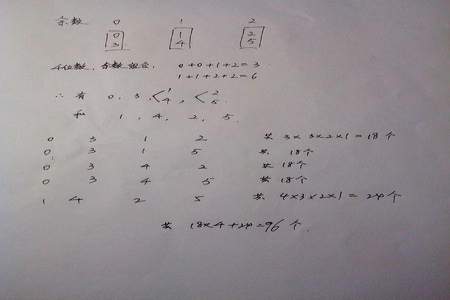 余数 0 1 2
0 1 2
3 4 5
4位数，余数组合， 0+0+1+2=3
1+1+2+2=6
∴ 有 0, 3, < 1 4, < 2 5.
和 1, 4, 2, 5.
0 3 1 2 共 3×3×2×1=18个
0 3 1 5 共 18个
0 3 4 2 共 18个
0 3 4 5 共 18个
1 4 2 5 共 4×3×2×1=24个
共 18×4+24=96 个.